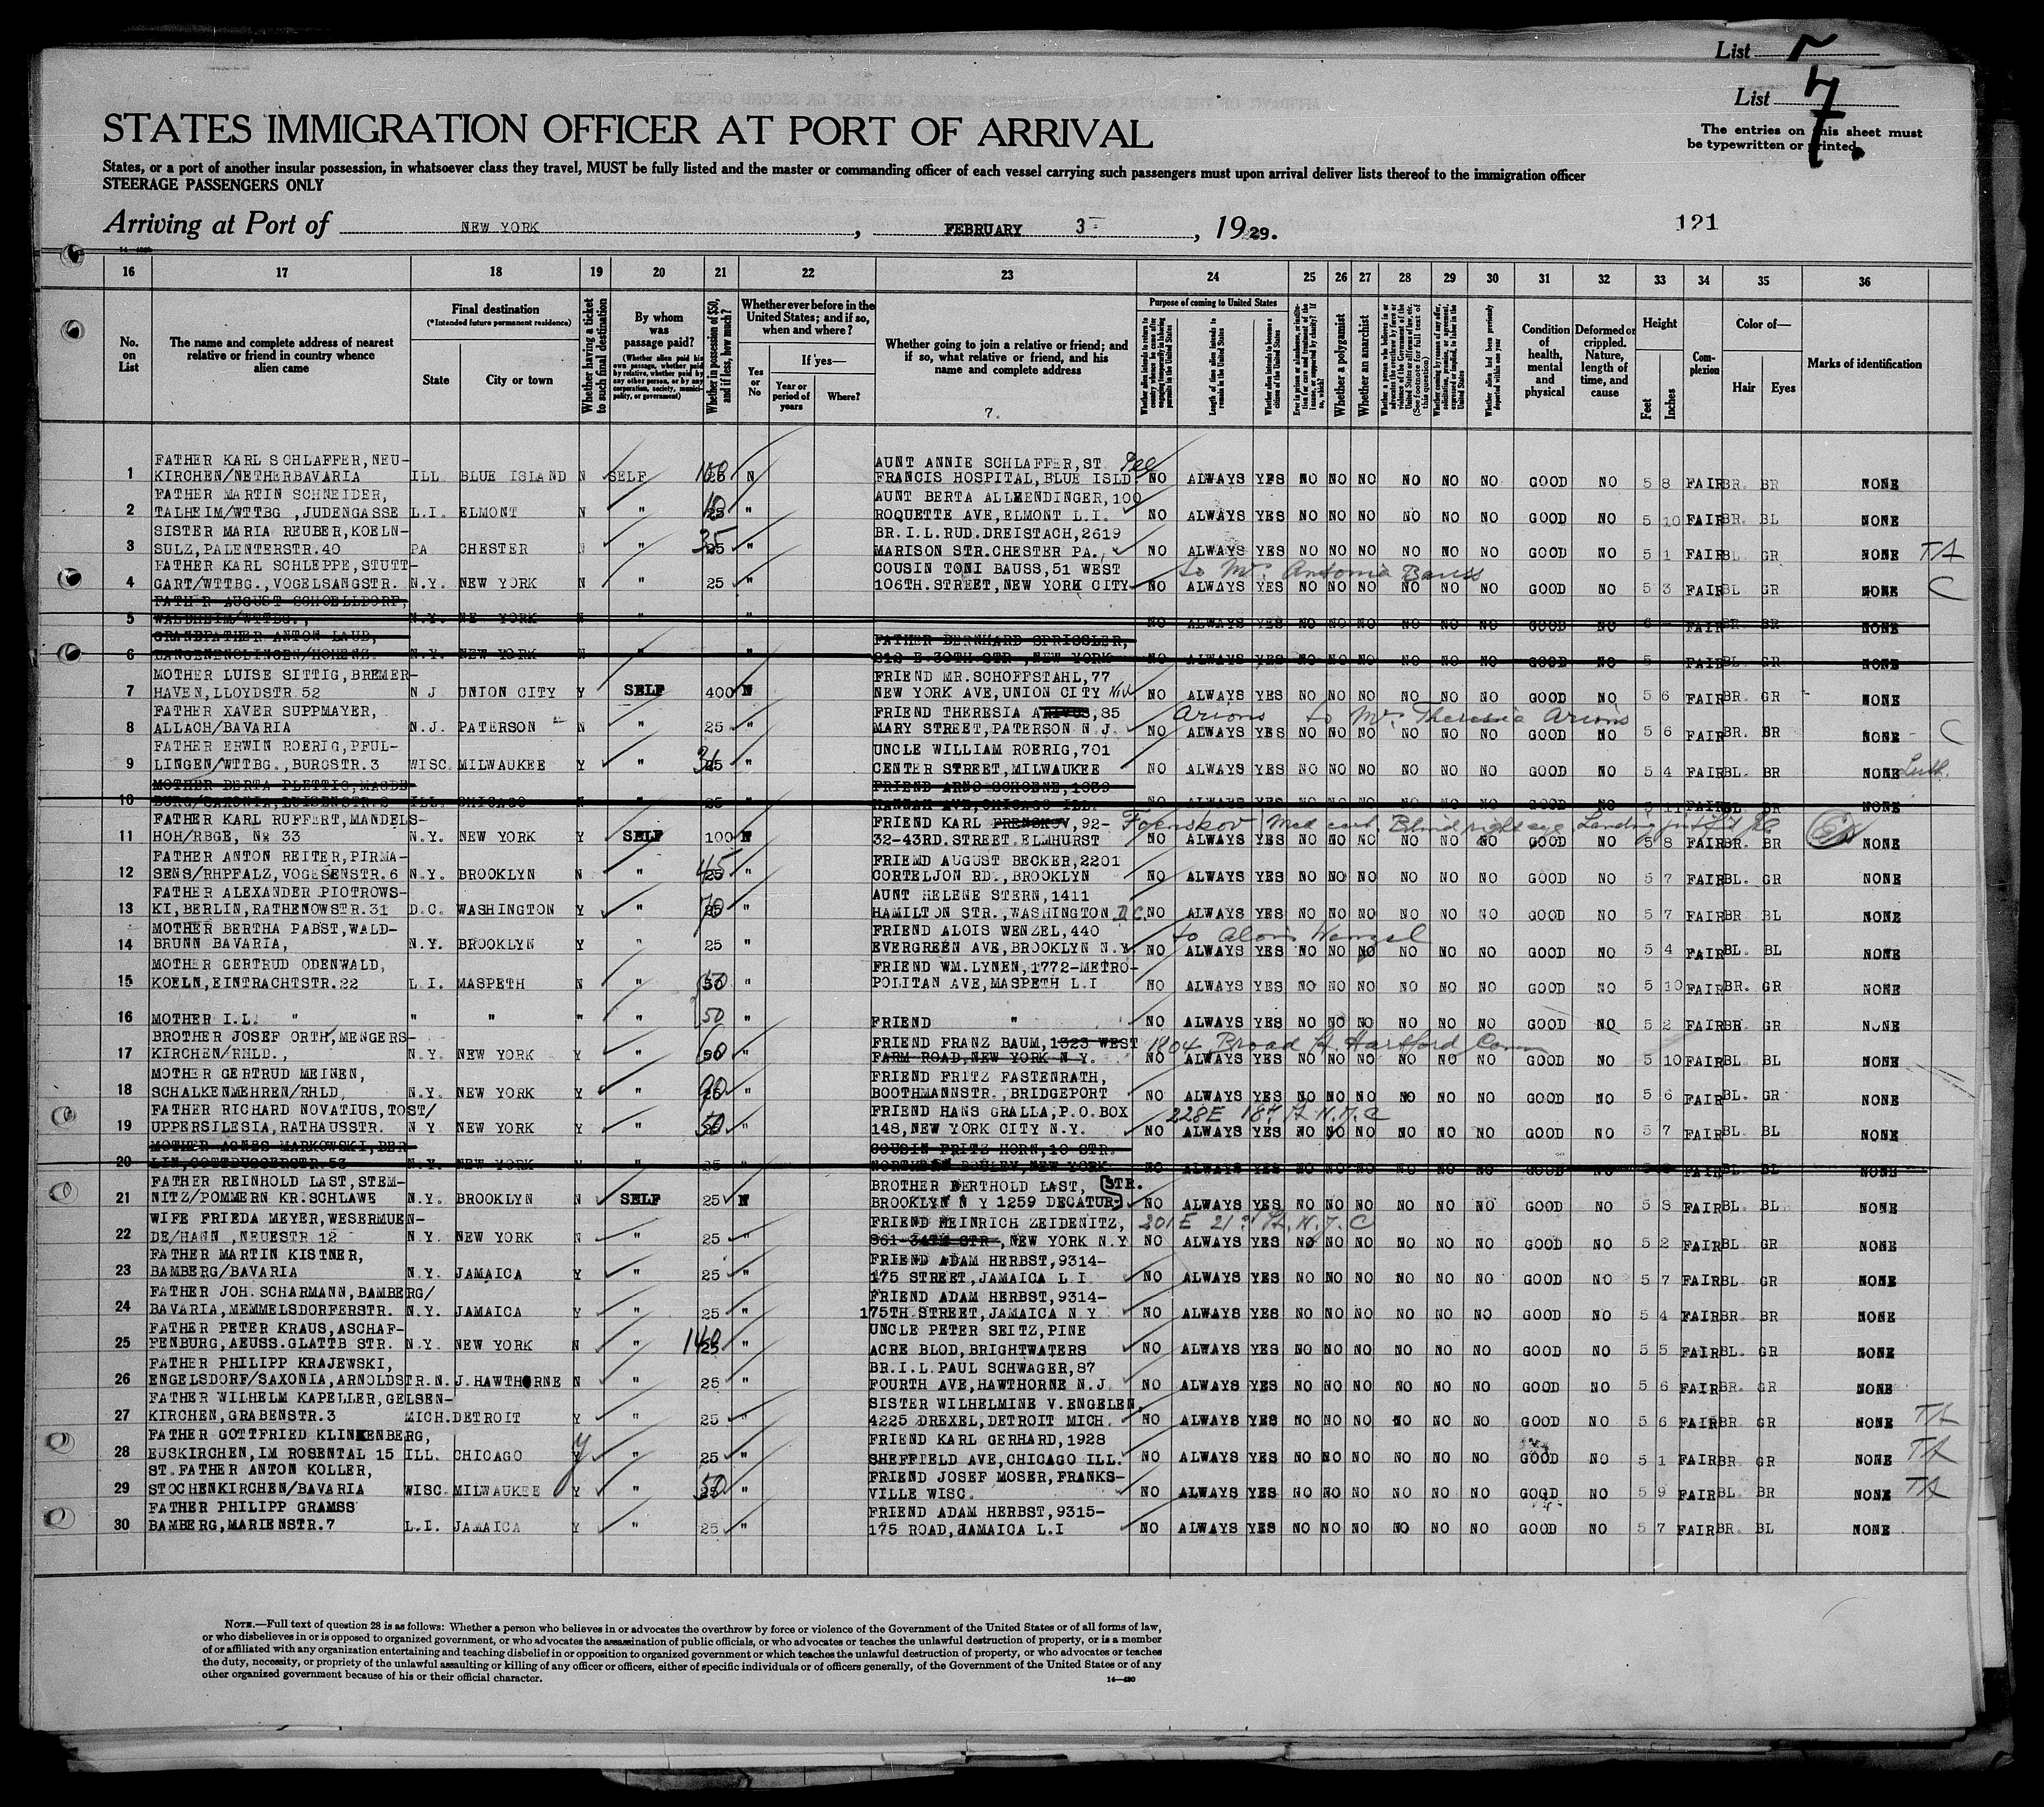 List 7
List 7
The entries on this sheet must
be typewritten or printed.
STATES IMMIGRATION OFFICER AT PORT OF ARRIVAL
States, or a port of another insular possession, in whatsoever class they travel, MUST be fully listed and the master or commanding officer of each vessel carrying such passengers must upon arrival deliver lists thereof to the immigration officer
STEERAGE PASSENGERS ONLY
Arriving at Port of NEW YORK, FEBRUARY 3, 1929.
121
16 17 18 19 20 21 22 23 24 25 26 27 28 29 30 31 32 33 34 35 36
No. on List
The name and complete address of nearest relative or friend in country whence alien came
Final destination
(*Intended future permanent residence)
State
City or town
Whether having a ticket to such final destination
By whom was passage paid?
(Whether alien paid his own passage, whether paid by relative, whether paid by any other person, or by any corporation, society, municipality, or government)
Whether in possession of $50, and if less, how much?
Whether ever before in the United States; and if so, when and where?
Yes or No
If yes—
Year or period of years
Where?
Whether going to join a relative or friend; and if so, what relative or friend, and his name and complete address
7.
Purpose of coming to United States
Length of time alien intends to remain in the United States
Whether alien intends to become a citizen of the United States
Whether a polygamist
Whether an anarchist
Condition of health, mental and physical
Deformed or crippled. Nature, length of time, and cause
Height
Feet
Inches
Complexion
Color of—
Hair
Eyes
Marks of identification
FATHER KARL SCHLAFFER, NEU- AUNT ANNIE SCHLAFFER, ST.
1 KIRCHEN/NETHERBAVARIA ILL. BLUE ISLAND N SELF 25 N FRANCIS HOSPITAL, BLUE ISLD NO ALWAYS YES NO NO NO NO NO NO GOOD NO 5 8 FAIR BR. BR NONE
FATHER MARTIN SCHNEIDER, AUNT BERTA ALLMENDINGER, 100
2 TALHEIM/WTTBG, JUDENGASSE L.I. ELMONT N " 25 " ROQUETTE AVE, ELMONT L.I. NO ALWAYS YES NO NO NO NO NO NO GOOD NO 5 10 FAIR BR. BL NONE
SISTER MARIA REUBER, KOELN- BR.I.L.RUD.DREISTACH, 2619
3 SULZ, PALENTERSTR.40 PA CHESTER N " 35 25 " MARISON STR.CHESTER PA., NO ALWAYS YES NO NO NO NO NO NO GOOD NO 5 1 FAIR BL GR NONE
FATHER KARL SCHLEPPE, STUTT- COUSIN TONI BAUSS, 51 WEST to Mrs. Antonia Bauss
4 GART/WTTBG., VOGELSANGSTR. N.Y. NEW YORK N " 25 " 106TH.STREET, NEW YORK CITY NO ALWAYS YES NO NO NO NO NO NO GOOD NO 5 3 FAIR BL GR NONE C
FATHER AUGUST SCHOELLDORF,
5 WALDHEIM/WTTBG., N.Y. NEW YORK N " " NO ALWAYS YES NO NO NO NO NO NO GOOD NO FAIR BR. BR NONE
GRANDFATHER ANTON LAUB, FATHER BERNHARD SPRISSLER,
6 LANGENENSLINGEN/HOHENZ. N.Y. NEW YORK N " " 312 E.30TH STR, NEW YORK NO ALWAYS YES NO NO NO NO NO NO GOOD NO 5 FAIR BL. GR NONE
MOTHER LUISE SITTIG, BREMER- FRIEND MR.SCHOFFSTAHL, 77
7 HAVEN, LLOYDSTR.52 N J UNION CITY Y SELF 400 N NEW YORK AVE, UNION CITY N.J. NO ALWAYS YES NO NO NO NO NO NO GOOD NO 5 6 FAIR BR. GR NONE
FATHER XAVER SUPPMAYER, FRIEND THERESIA, 85 Arions to Mrs. Theresia Arions
8 ALLACH/BAVARIA N.J. PATERSON N " 25 " MARY STREET, PATERSON N.J. NO ALWAYS YES NO NO NO NO NO NO GOOD NO 5 6 FAIR BR. BR NONE C
FATHER ERWIN ROERIG, PFUL- UNCLE WILLIAM ROERIG, 701
9 LINGEN/WTTBG., BURGSTR.3 WISC. MILWAUKEE Y " 25 " CENTER STREET, MILWAUKEE NO ALWAYS YES NO NO NO NO NO NO GOOD NO 5 4 FAIR BL. BR NONE
MOTHER BERTA PLETTIG, MAGDE- FRIEND ARNO SCHOENE, 1039
10 BURG/SAXONIA, LUISENSTR.8 ILL. CHICAGO N 25 " HANNAH AVE, CHICAGO ILL. NO ALWAYS YES NO NO NO NO NO NO GOOD NO 5 11 FAIR BL. BR NONE
FATHER KARL RUFFERT, MANDELS- FRIEND KARL FRENSKOV, 92- Foenskov Med cert. Blind right eye
11 HOH/RBGE, No 33 N.Y. NEW YORK Y SELF 100 N 32-43RD.STREET.ELMHURST NO ALWAYS YES NO NO NO NO NO NO GOOD NO 5 8 FAIR BR. BR NONE
FATHER ANTON REITER, PIRMA- FRIEMD AUGUST BECKER, 2201
12 SENS/RHPFALZ, VOGESENSTR.6 N.Y. BROOKLYN N " 45 25 " CORTELJON RD., BROOKLYN NO ALWAYS YES NO NO NO NO NO NO GOOD NO 5 7 FAIR BL. GR NONE
FATHER ALEXANDER PIOTROWS- AUNT HELENE STERN, 1411
13 KI, BERLIN, RATHENOWSTR.31 D.C. WASHINGTON Y " 70 " HAMILTON STR., WASHINGTON D.C. NO ALWAYS YES NO NO NO NO NO NO GOOD NO 5 7 FAIR BR BL NONE
MOTHER BERTHA PABST, WALD- FRIEND ALOIS WENZEL, 440 to Alois Wenzel
14 BRUNN BAVARIA, N.Y. BROOKLYN Y " 25 " EVERGREEN AVE, BROOKLYN N.Y. NO ALWAYS YES NO NO NO NO NO NO GOOD NO 5 4 FAIR BL. BL NONE
MOTHER GERTRUD ODENWALD, FRIEND WM.LYNEN, 1772-METRO-
15 KOELN, EINTRACHTSTR.22 L.I. MASPETH N " 50 " POLITAN AVE, MASPETH L.I NO ALWAYS YES NO NO NO NO NO NO GOOD NO 5 10 FAIR BR. GR NONE
16 MOTHER I.L. " " " " " 50 " FRIEND " NO ALWAYS YES NO NO NO NO NO NO GOOD NO 5 2 FAIR BR. GR NONE
BROTHER JOSEF ORTH, MENGERS- FRIEND FRANZ BAUM, 1323 WEST 1804 Broad St Hartford Conn
17 KIRCHEN/RHLD., N.Y. NEW YORK Y " 60 " FARM ROAD, NEW YORK N Y. NO ALWAYS YES NO NO NO NO NO NO GOOD NO 5 10 FAIR BL. BL NONE
MOTHER GERTRUD MEINEN, FRIEND FRITZ FASTENRATH,
18 SCHALKENMEHREN/RHLD, N.Y. NEW YORK Y " 90 25 " BOOTHMANNSTR., BRIDGEPORT NO ALWAYS YES NO NO NO NO NO NO GOOD NO 5 6 FAIR BL. GR NONE
FATHER RICHARD NOVATIUS, TOST/ FRIEND HANS GRALLA, P.O.BOX 228E 18th St N.Y.C
19 UPPERSILESIA, RATHAUSSTR. N Y NEW YORK Y " 50 " 148, NEW YORK CITY N.Y. NO ALWAYS YES NO NO NO NO NO NO GOOD NO 5 7 FAIR BL. BL NONE
MOTHER AGNES MARKOWSKI, BER- COUSIN FRITZ HORN, 10 STR.
20 LIN, COTTBUSSERSTR.53 N.Y. NEW YORK 25 " NORTHERN BOULEV, NEW YORK NO ALWAYS YES NO NO NO NO NO NO GOOD NO 5 FAIR BL. BL NONE
FATHER REINHOLD LAST, STEM- BROTHER BERTHOLD LAST, STR.
21 NITZ/POMMERN KR.SCHLAWE N.Y. BROOKLYN N SELF 25 N BROOKLYN N Y 1259 DECATUR NO ALWAYS YES NO NO NO NO NO NO GOOD NO 5 8 FAIR BL. BL NONE
WIFE FRIEDA MEYER, WESERMUEN- FRIEND HEINRICH ZEIDENITZ, 201E 21st St. N.Y.C
22 DE/HANN, NEUESTR.12 N.Y. NEW YORK N " 25 " 361 34TH STR, NEW YORK N.Y NO ALWAYS YES NO NO NO NO NO NO GOOD NO 5 2 FAIR BL GR NONE
FATHER MARTIN KISTNER, FRIEND ADAM HERBST, 9314-
23 BAMBERG/BAVARIA N.Y. JAMAICA Y " 25 " 175 STREET, JAMAICA L.I. NO ALWAYS YES NO NO NO NO NO NO GOOD NO 5 7 FAIR BL GR NONE
FATHER JOH.SCHARMANN, BAMBERG/ FRIEND ADAM HERBST, 9314-
24 BAVARIA, MEMMELSDORFERSTR. N.Y. JAMAICA Y " 25 " 175TH.STREET, JAMAICA N.Y NO ALWAYS YES NO NO NO NO NO NO GOOD NO 5 4 FAIR BR. BR NONE
FATHER PETER KRAUS, ASCHAF- UNCLE PETER SEITZ, PINE
25 FENBURG, AEUSS.GLATTB STR. N.Y. NEW YORK N " 140 25 " ACRE BLOD, BRIGHTWATERS NO ALWAYS YES NO NO NO NO NO NO GOOD NO 5 5 FAIR BL. GR NONE
FATHER PHILIPP KRAJEWSKI, BR.I.L.PAUL SCHWAGER, 87
26 ENGELSDORF/SAXONIA, ARNOLDSTR. N.J. HAWTHORNE N " 25 " FOURTH AVE, HAWTHORNE N.J. NO ALWAYS YES NO NO NO NO NO NO GOOD NO 5 6 FAIR BR. GR NONE
FATHER WILHELM KAPELLER, GELSEN- SISTER WILHELMINE V.ENGELEN,
27 KIRCHEN, GRABENSTR.3 MICH. DETROIT Y " 25 " 4225 DREXEL, DETROIT MICH. NO ALWAYS YES NO NO NO NO NO NO GOOD NO 5 6 FAIR BR GR NONE
FATHER GOTTFRIED KLINKENBERG, FRIEND KARL GERHARD, 1928
28 EUSKIRCHEN, IM ROSENTAL 15 ILL. CHICAGO Y " 25 " SHEFFIELD AVE, CHICAGO ILL. NO ALWAYS YES NO NO NO NO NO NO GOOD NO 5 1 FAIR BR. GR NONE
ST.FATHER ANTON KOLLER, FRIEND JOSEF MOSER, FRANKS-
29 STOCHENKIRCHEN/BAVARIA WISC. MILWAUKEE Y " 50 25 " VILLE WISC. NO ALWAYS YES NO NO NO NO NO NO GOOD NO 5 9 FAIR BL. BR NONE
FATHER PHILIPP GRAMSS FRIEND ADAM HERBST, 9315-
30 BAMBERG, MARIENSTR.7 L.I. JAMAICA Y " 25 " 175 ROAD, JAMAICA L.I NO ALWAYS YES NO NO NO NO NO NO GOOD NO 5 7 FAIR BR. BL NONE
NOTE.—Full text of question 28 is as follows: Whether a person who believes in or advocates the overthrow by force or violence of the Government of the United States or of all forms of law,
or who disbelieves in or is opposed to organized government, or who advocates the assassination of public officials, or who advocates or teaches the unlawful destruction of property, or is a member
of or affiliated with any organization entertaining and teaching disbelief in or opposition to organized government or which teaches the unlawful destruction of property, or who advocates or teaches
the duty, necessity, or propriety of the unlawful assaulting or killing of any officer or officers, either of specific individuals or of officers generally, of the Government of the United States or of any
other organized government because of his or their official character.
14—430